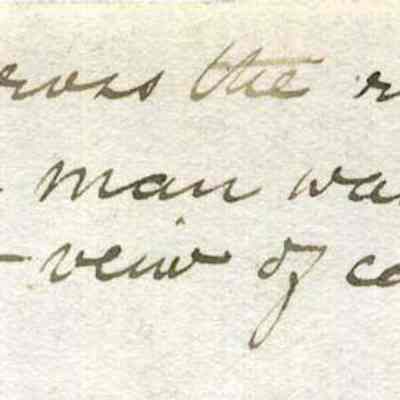 ross the r
man wa
- veiw of co